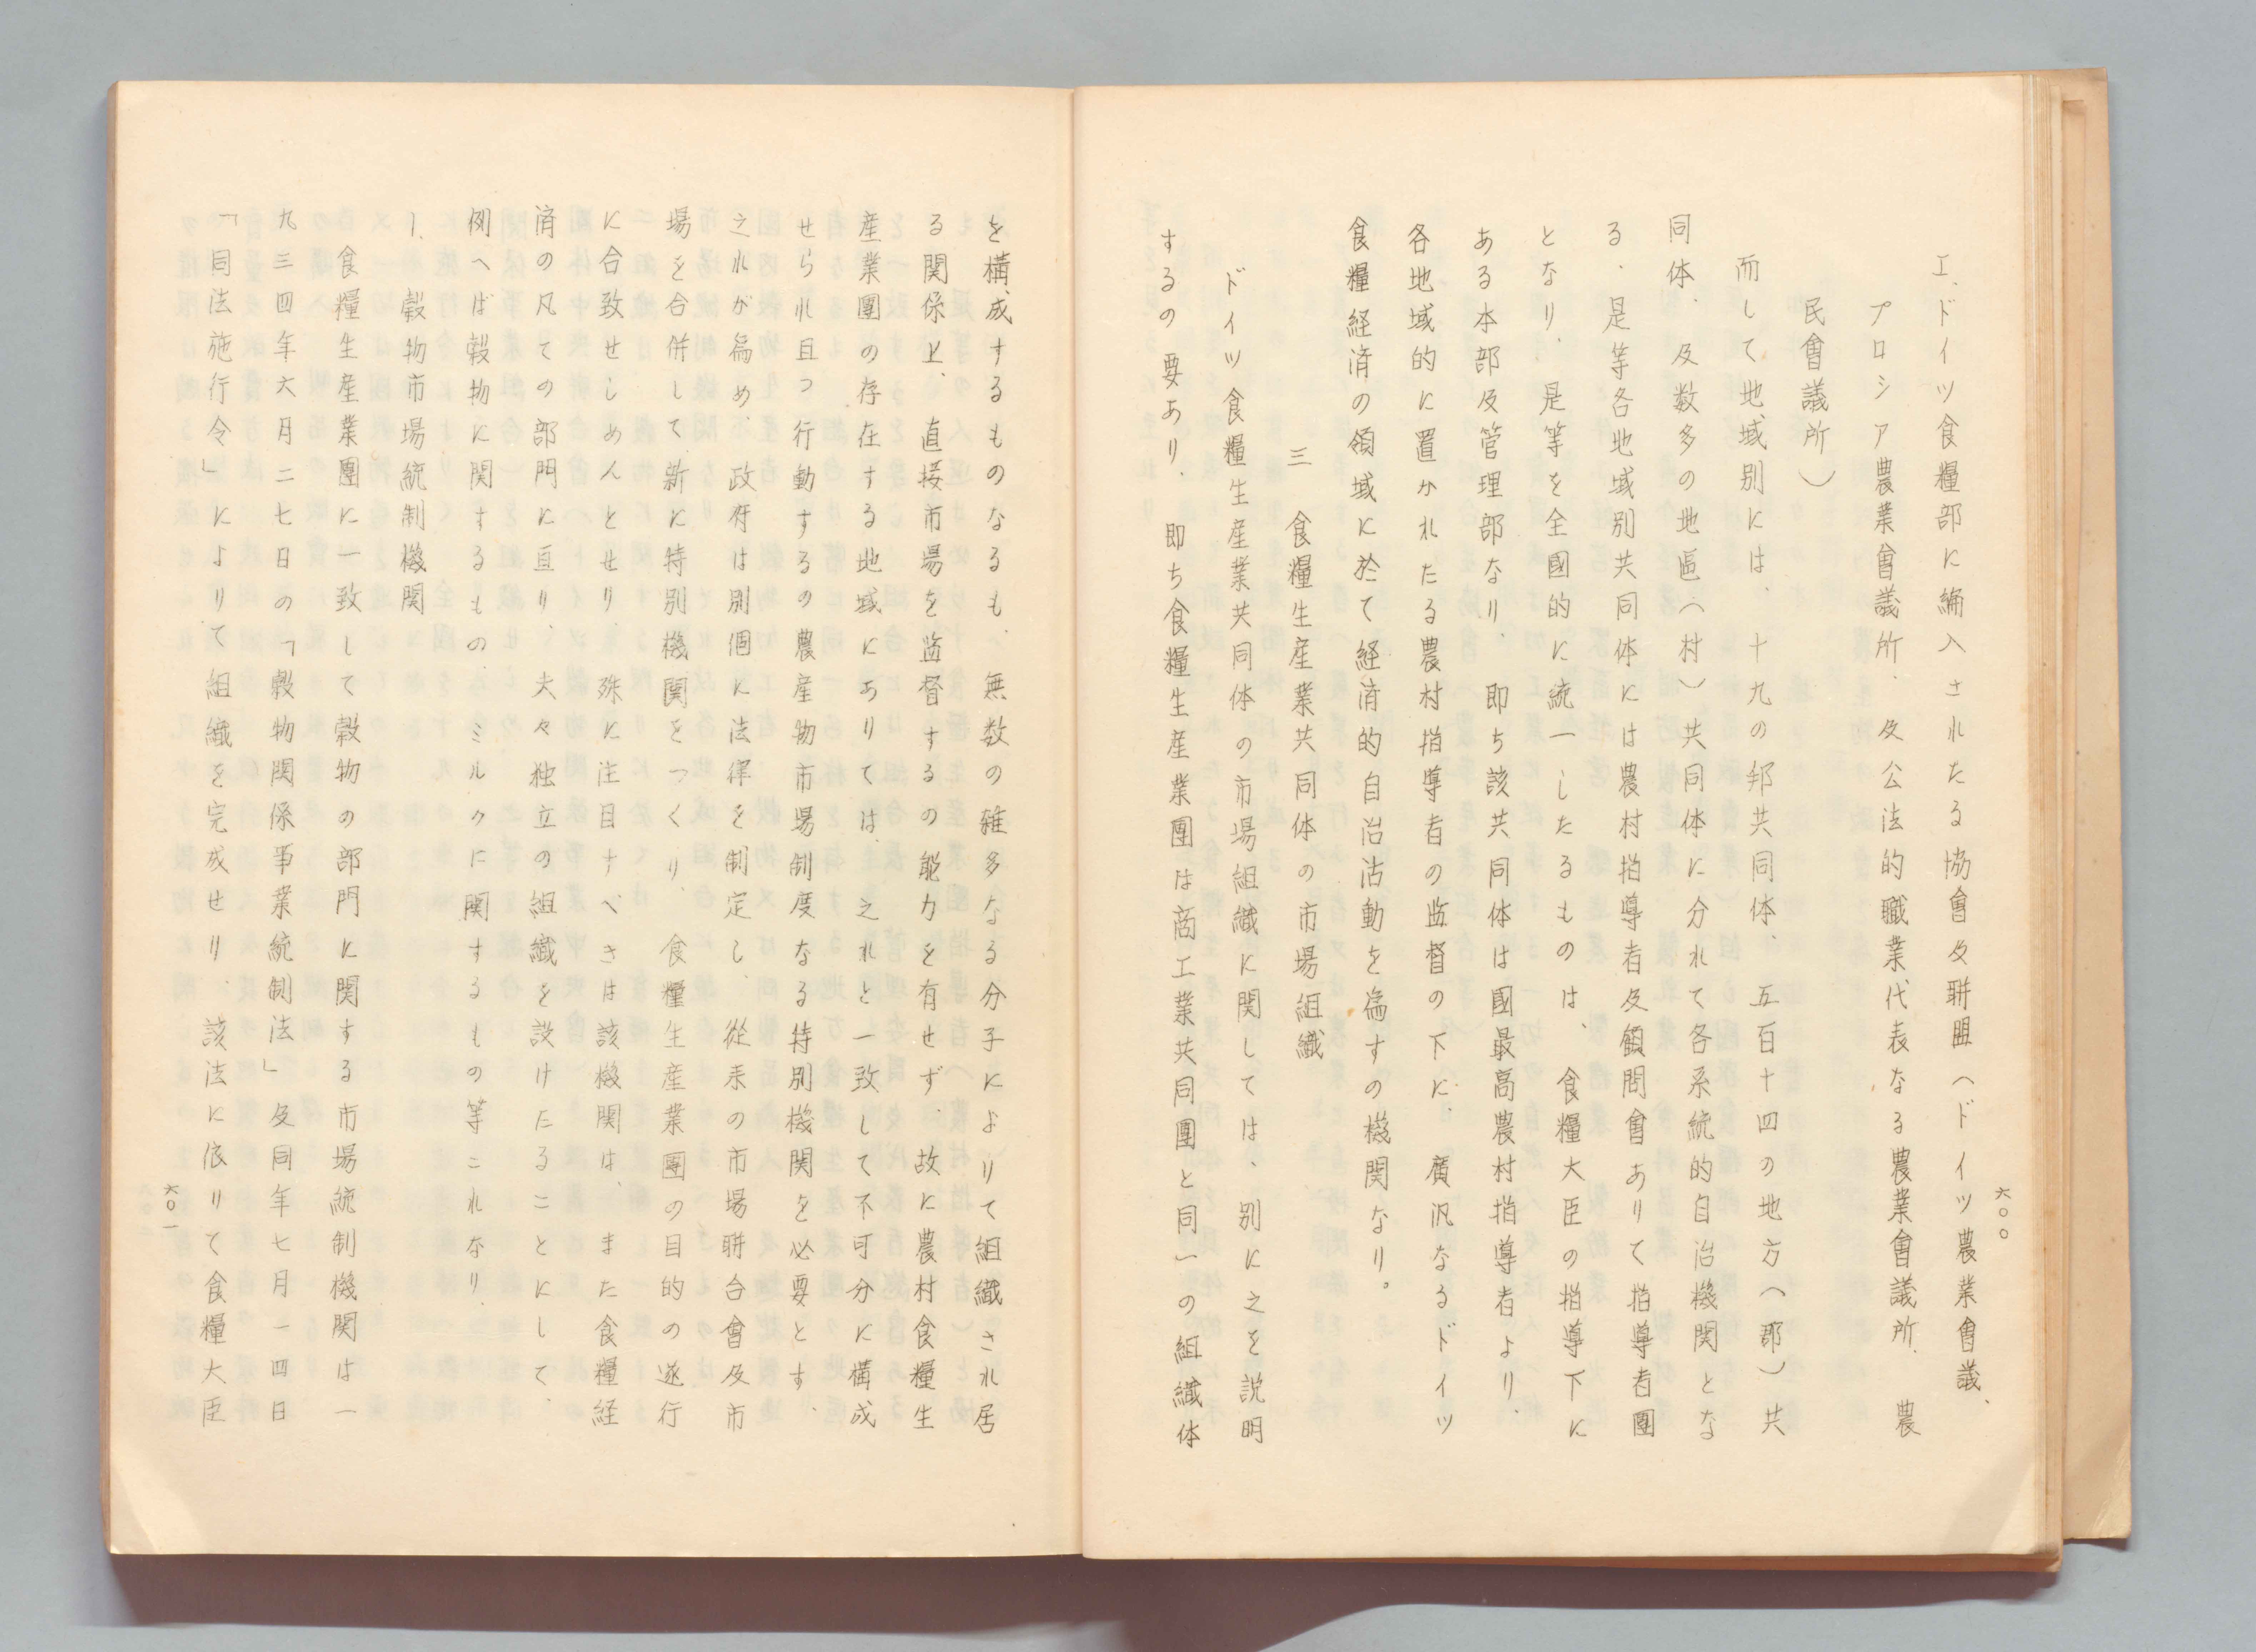 六〇〇
エ、ドイツ食糧部に編入されたる協會及聯盟（ドイツ農業會議、
プロシア農業會議所、及公法的職業代表なる農業會議所、農
民會議所）
而して地域別には、十九の邦共同体、五百十四の地方（郡）共
同体、及数多の地區（村）共同体に分れて各系統的自治機関とな
る、是等各地域別共同体には農村指導者及顧問會ありて指導者團
となり、是等を全國的に統一したるものは、食糧大臣の指導下に
ある本部及管理部なり、即ち該共同体は國最高農村指導者より、
各地域的に置かれたる農村指導者の監督の下に、廣汎なるドイツ
食糧経済の領域に於て経済的自治活動を為すの機関なり。
三 食糧生産業共同体の市場組織
ドイツ食糧生産業共同体の市場組織に関しては、別に之を説明
するの要あり、即ち食糧生産業團は商工業共同團と同一の組織体
を構成するものなるも、無数の雑多なる分子によりて組織され居
る関係上、直接市場を監督するの能力を有せず、故に農村食糧生
産業團の存在する地域にありては、之れと一致して不可分に構成
せられ且つ行動するの農産物市場制度なる特別機関を必要とす、
之れが為め、政府は別個に法律を制定し、從来の市場聯合會及市
場を合併して新に特別機関をつくり、食糧生産業團の目的の遂行
に合致せしめんとせり、殊に注目すべきは該機関は、また食糧経
済の凡ての部門に亘り、夫々独立の組織を設けたることにして、
例へば穀物に関するもの、ミルクに関するもの等これなり、
1、穀物市場統制機関
食糧生産業團に一致して穀物の部門に関する市場統制機関は一
九三四年六月二七日の「穀物関係事業統制法」及同年七月一四日
「同法施行令」によりて組織を完成せり、該法に依りて食糧大臣
六〇一